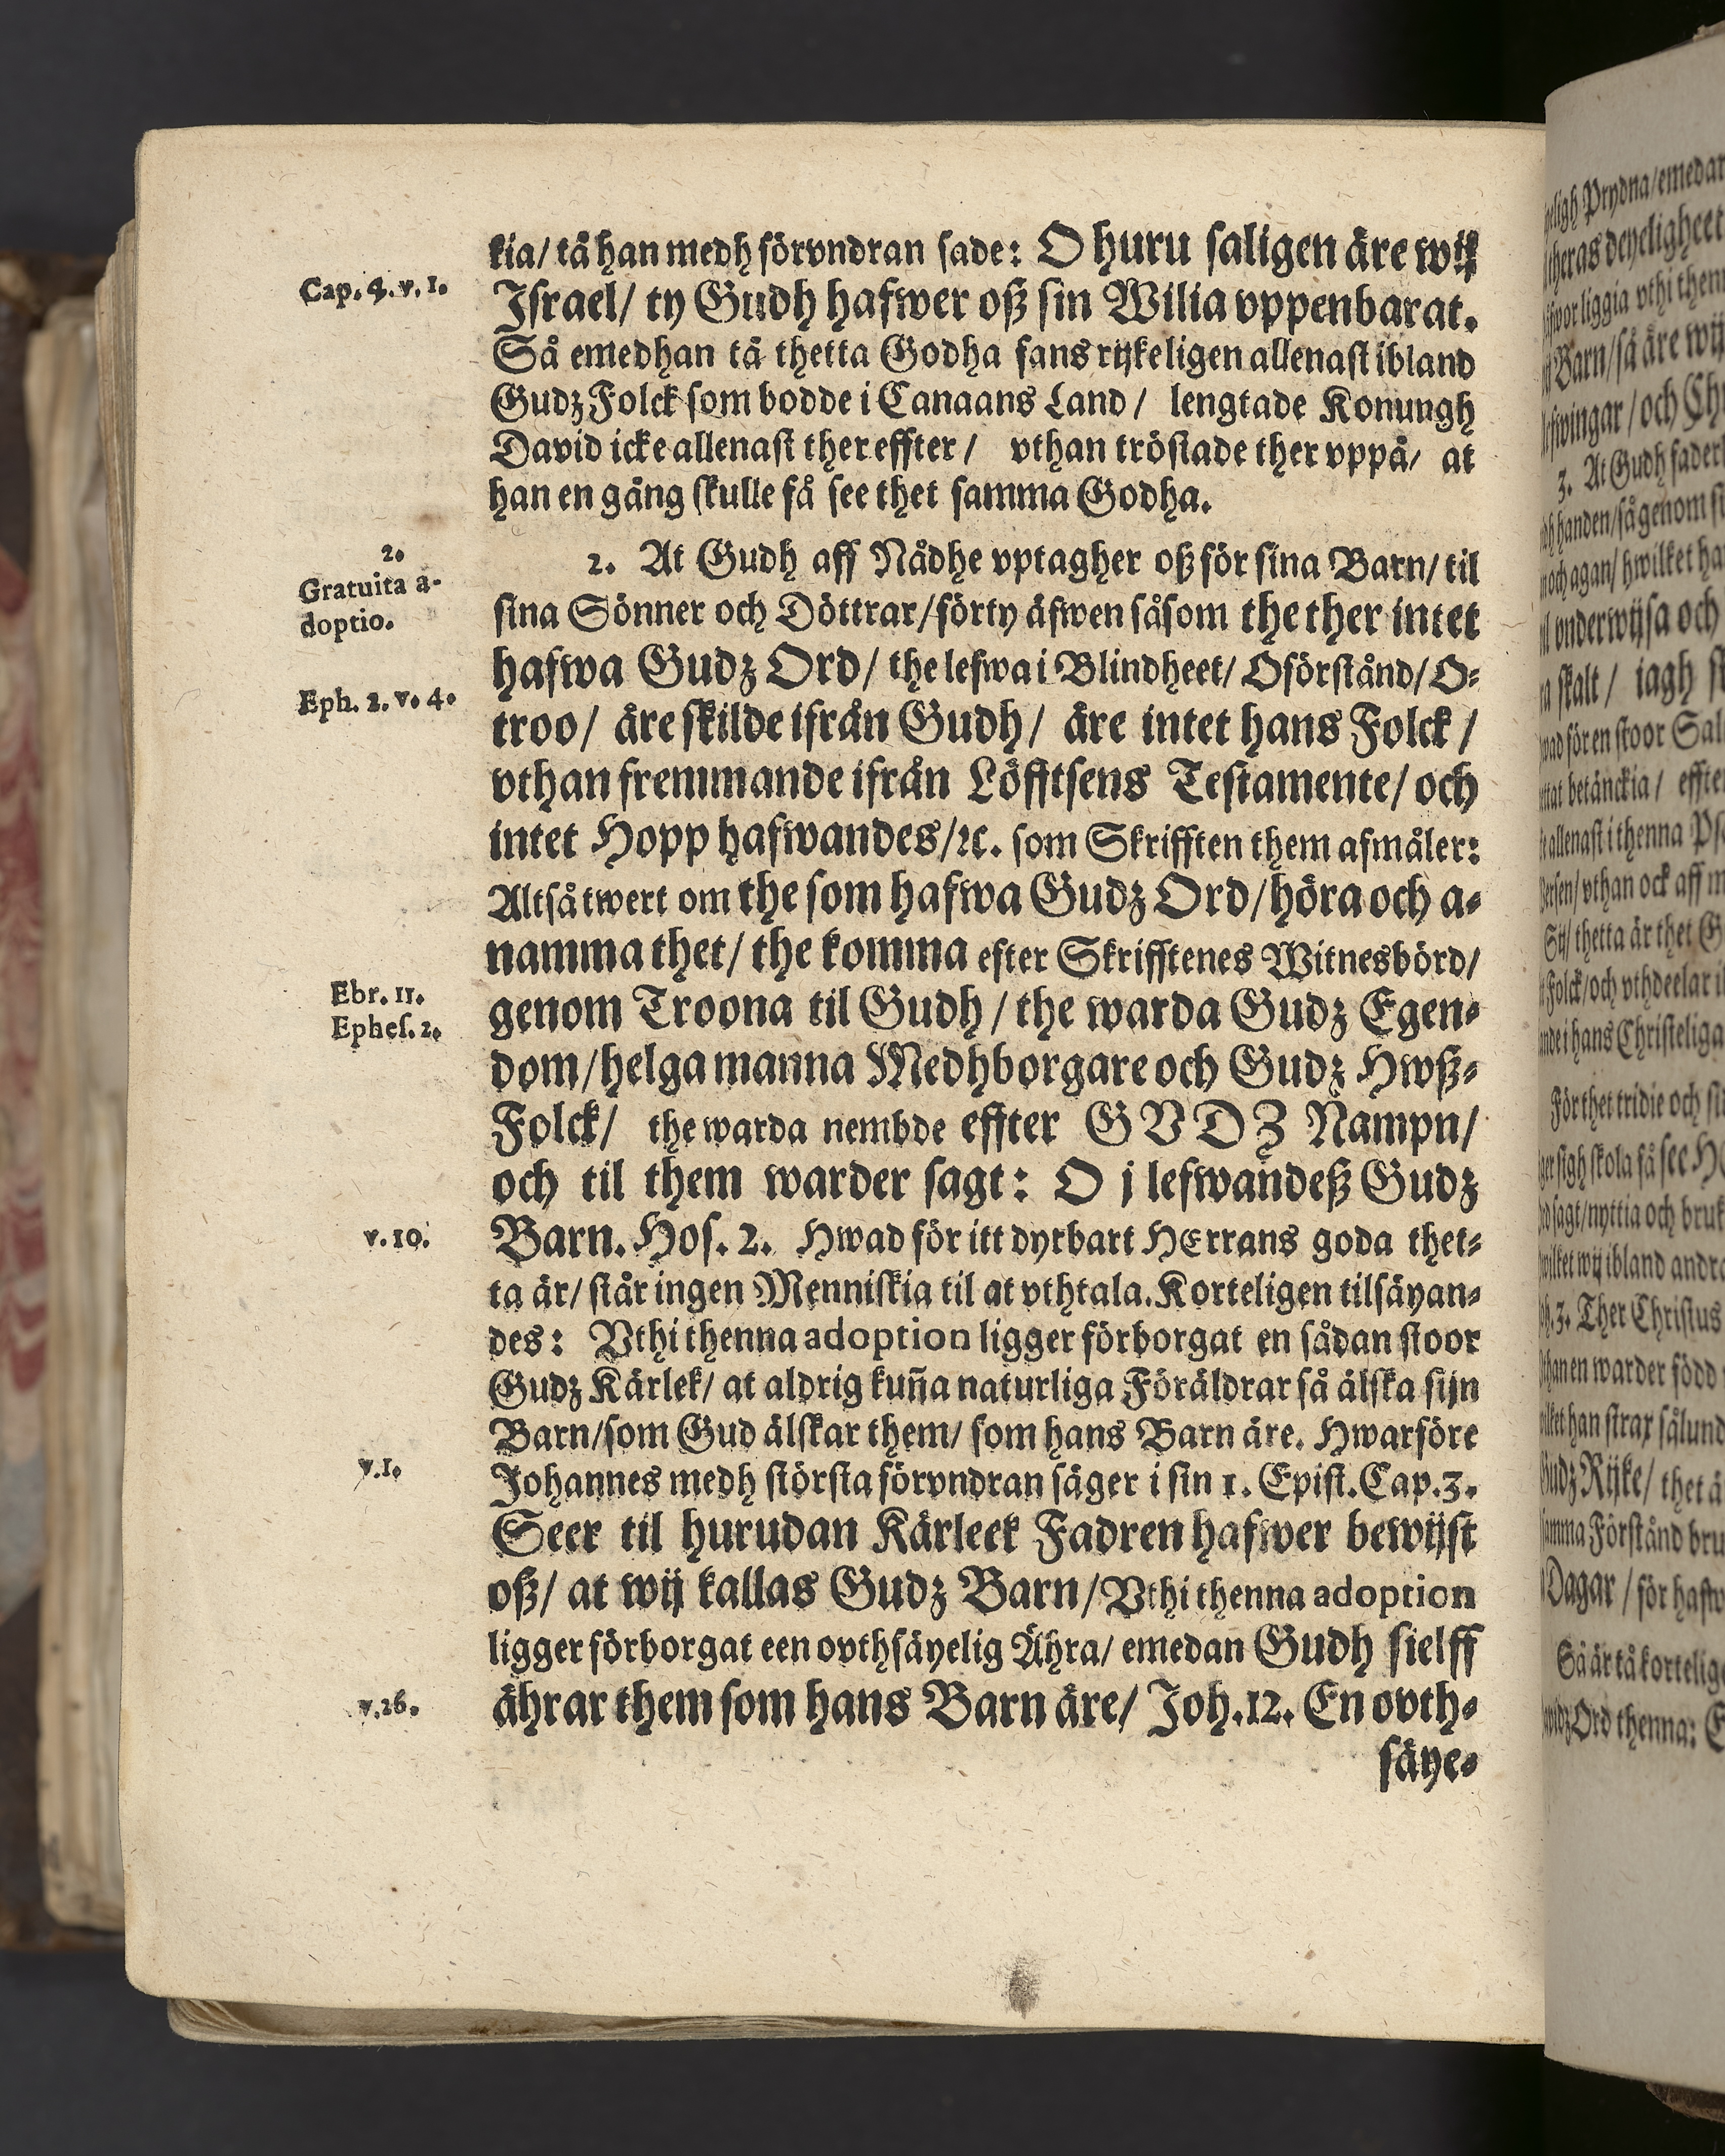 kia/ tå han medh förvndran sade: O huru saligen äre wij
Cap. 4. v. 1.
Israel/ ty Gudh hafwer oß sin Wilia vppenbarat.
Så emedhan tå thetta Godha fans rijkeligen allenast ibland
Gudz Folck som bodde i Canaans Land/ lengtade Konungh
David icke allenast ther effter/ vthan tröstade ther vppå/ at
han en gång skulle få see thet samma Godha.
2.
Gratuita a-
doptio.
2. At Gudh aff Nådhe vptagher oß för sina Barn/ til
sina Sönner och Döttrar/ förty äfwen såsom the ther intet
hafwa Gudz Ord/ the lefwa i Blindheet/ Oförstånd/ O-
Eph. 2. v. 4.
troo/ äre skilde ifrån Gudh/ äre intet hans Folck/
vthan fremmande ifrån Löfftsens Testamente/ och
intet Hopp hafwandes/ ꝛc. som Skrifften them afmåler:
Altså twert om the som hafwa Gudz Ord/ höra och a-
namma thet/ the komma efter Skrifftenes Witnesbörd/
Ebr. 11.
Ephes. 2.
genom Troona til Gudh/ the warda Gudz Egen-
dom/ helga manna Medhborgare och Gudz Hwß-
Folck/ the warda nembde effter GVDZ Nampn/
och til them warder sagt: O j lefwandeß Gudz
v. 10.
Barn. Hos. 2. Hwad för itt dyrbart HErrans goda thet-
ta är/ står ingen Menniskia til at vthtala. Korteligen tilsäyan-
des: Vthi thenna adoption ligger förborgat en sådan stoor
Gudz Kärlek/ at aldrig kun̄a naturliga Föräldrar så älska sijn
Barn/ som Gud älskar them/ som hans Barn äre. Hwarföre
v. 1.
Johannes medh största förvndran säger i sin 1. Epist. Cap. 3.
Seer til hurudan Kärleek Fadren hafwer bewijst
oß/ at wij kallas Gudz Barn/ Vthi thenna adoption
ligger förborgat een ovthsäyelig Ährа/ emedan Gudh sielff
v. 26.
ährar them som hans Barn äre/ Joh. 12. En ovth-
säye-